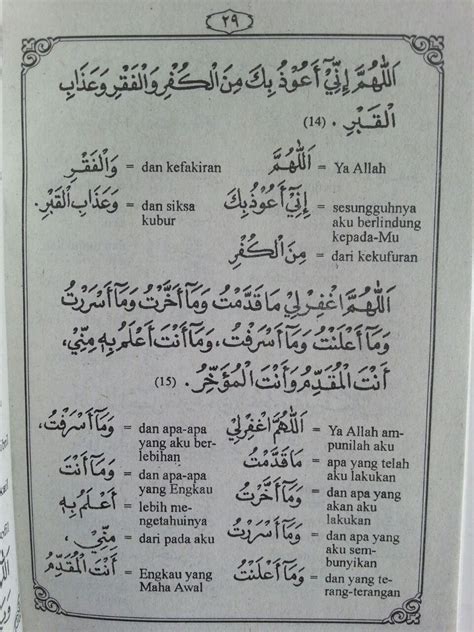 ٢٩
اَللّٰهُمَّ إِنِّيْٓ أَعُوْذُ بِكَ مِنَ الْكُفْرِ وَالْفَقْرِ وَعَذَابِ
الْقَبْرِ . (14)
اَللّٰهُمَّ = Ya Allah
إِنِّيْٓ أَعُوْذُ بِكَ = sesungguhnya
aku berlindung
kepada-Mu
مِنَ الْكُفْرِ = dari kekufuran
وَالْفَقْرِ = dan kefakiran
وَعَذَابِ الْقَبْرِ. = dan siksa
kubur
اَللّٰهُمَّ اغْفِرْ لِيْ مَا قَدَّمْتُ وَمَآ أَخَّرْتُ وَمَآ أَسْرَرْتُ
وَمَآ أَعْلَنْتُ وَمَآ أَسْرَفْتُ، وَمَآ أَنْتَ أَعْلَمُ بِهِ مِنِّيْ،
أَنْتَ الْمُقَدِّمُ وَأَنْتَ الْمُؤَخِّرُ. (15)
اَللّٰهُمَّ اغْفِرْ لِيْ = Ya Allah am-
punilah aku
مَا قَدَّمْتُ = apa yang telah
aku lakukan
وَمَآ أَخَّرْتُ = dan apa yang
akan aku
lakukan
وَمَآ أَسْرَرْتُ = dan apa yang
aku sem-
bunyikan
وَمَآ أَعْلَنْتُ = dan yang te-
rang-terangan
وَمَآ أَسْرَفْتُ، = dan apa-apa
yang aku ber-
lebihan
وَمَآ أَنْتَ = dan apa-apa
yang Engkau
أَعْلَمُ بِهِ = lebih me-
ngetahuinya
مِنِّيْ، = dari pada aku
أَنْتَ الْمُقَدِّمُ = Engkau yang
Maha Awal